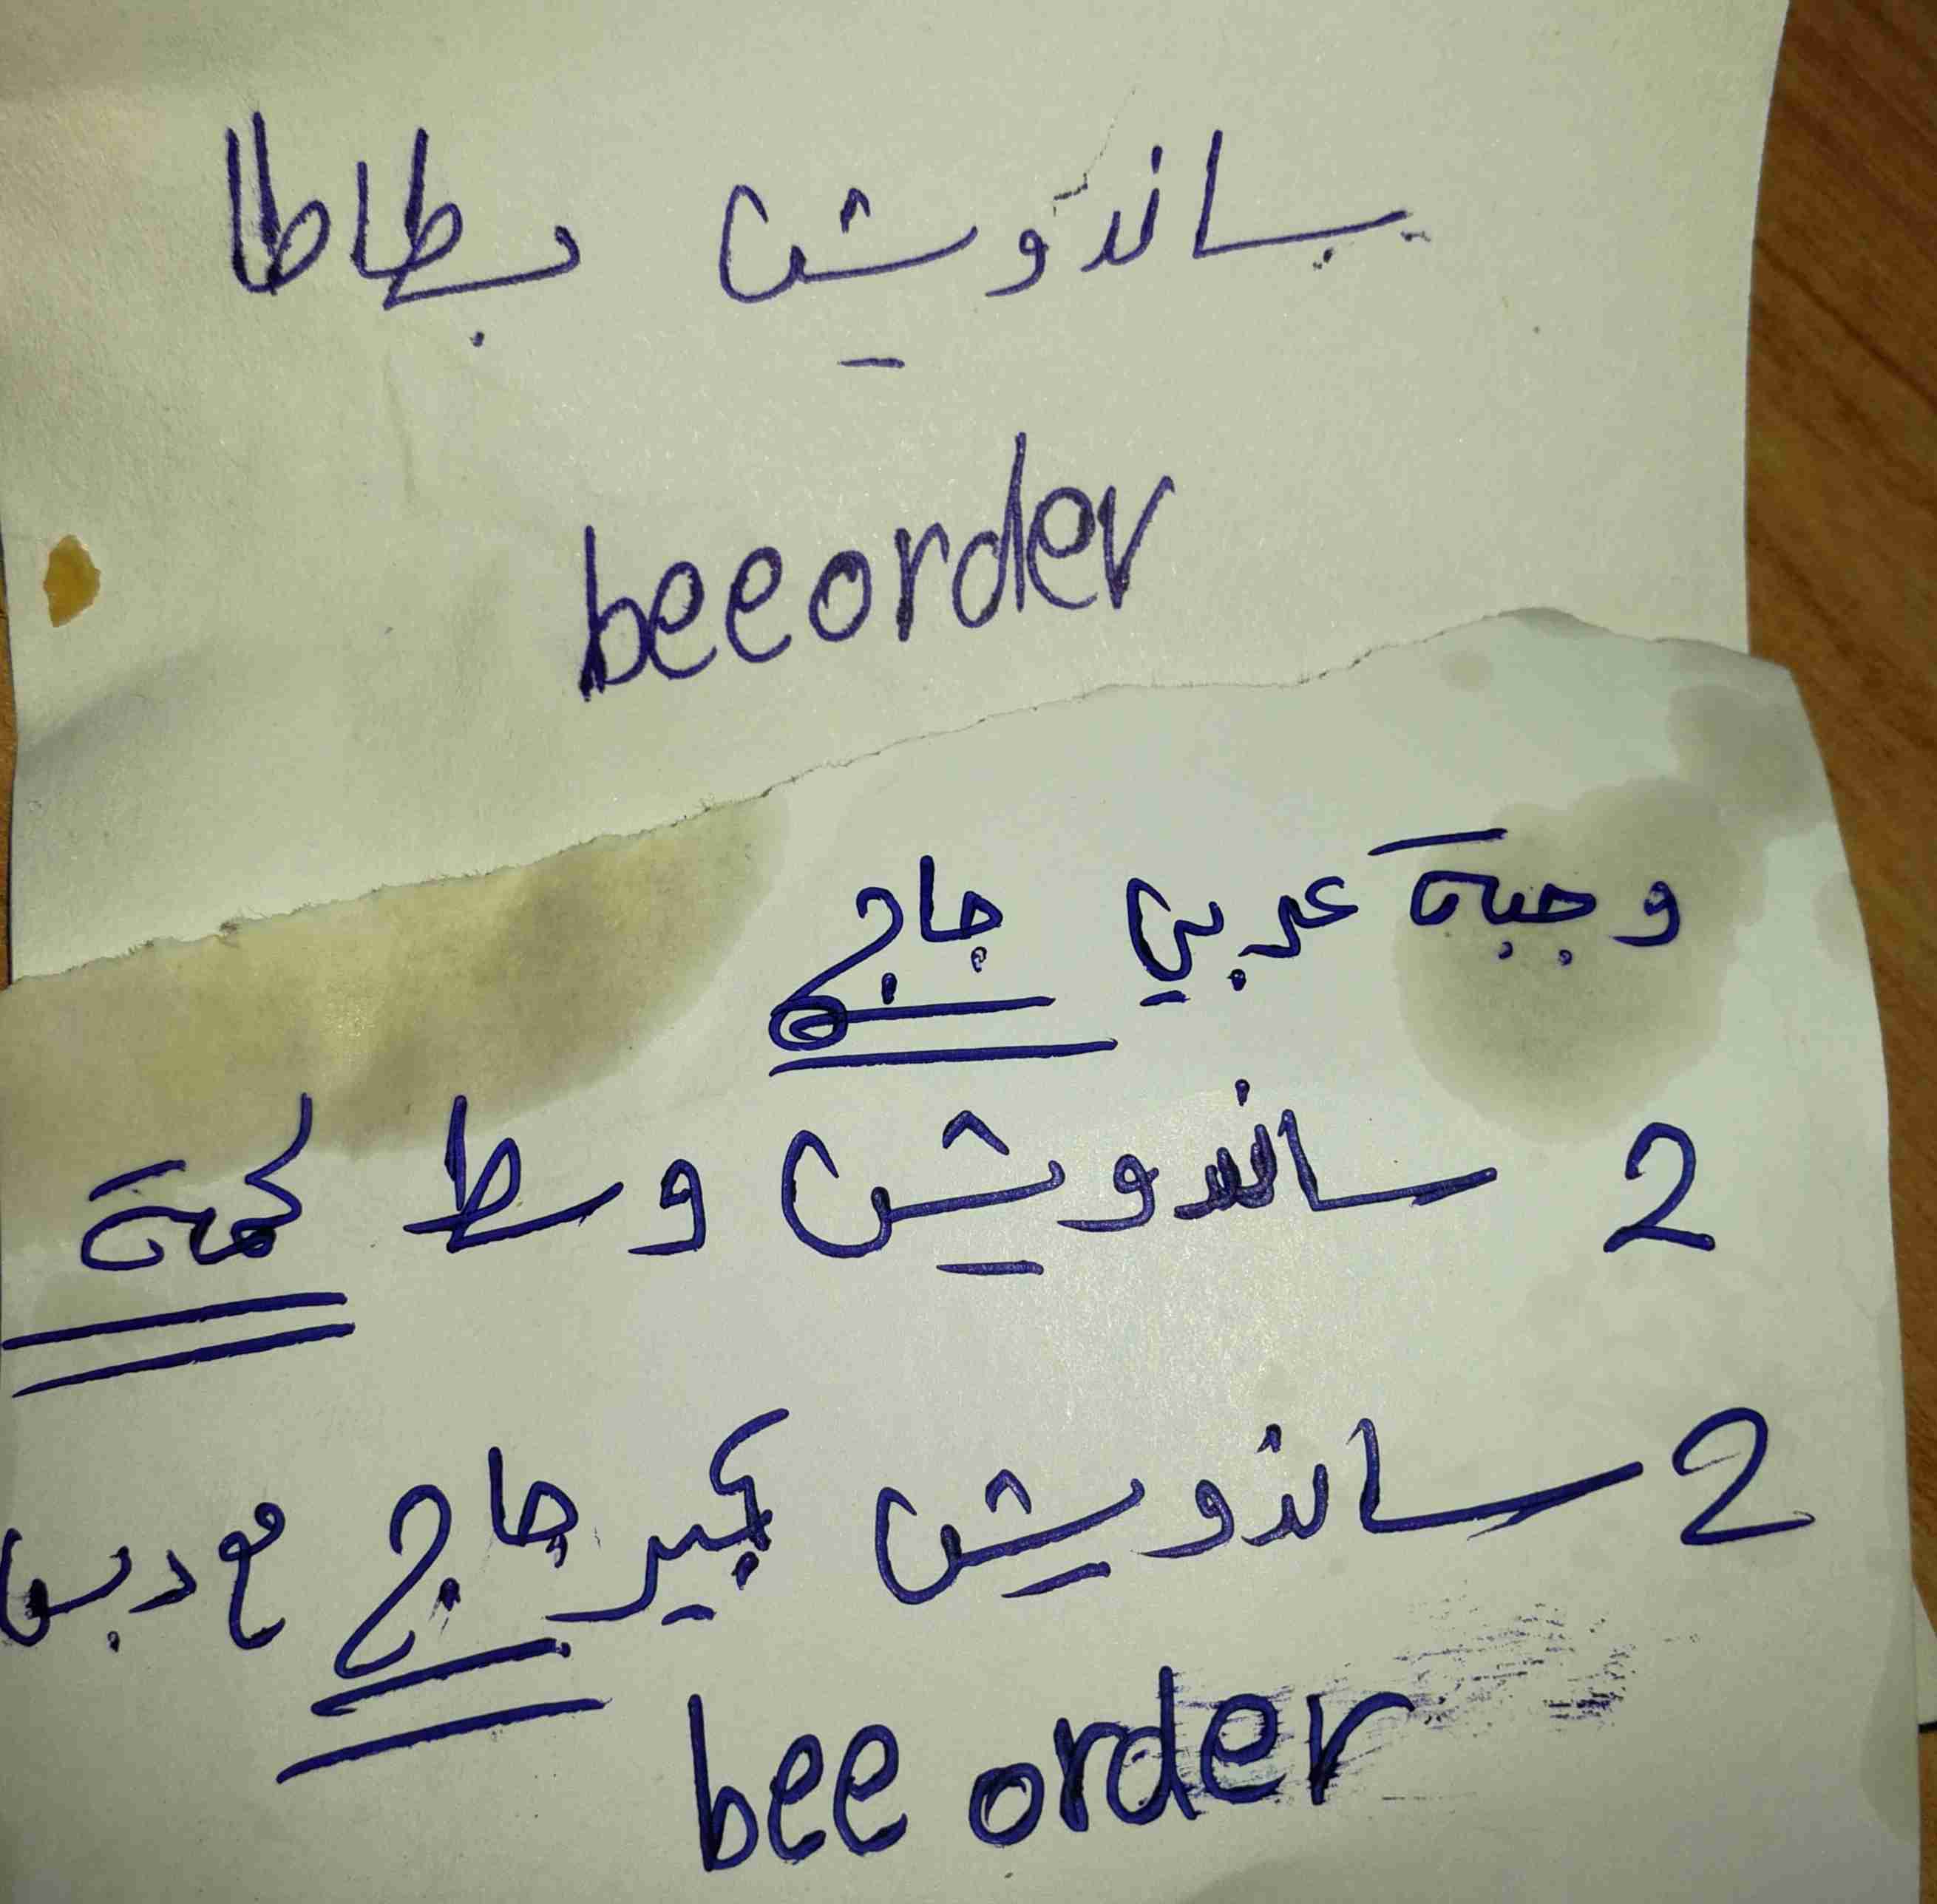 ساندويش بطاطا
beeorder
وجبة عربي جاج
2 ساندويش وسط لحمة
2 ساندويش كبير جاج مع دبس
bee order